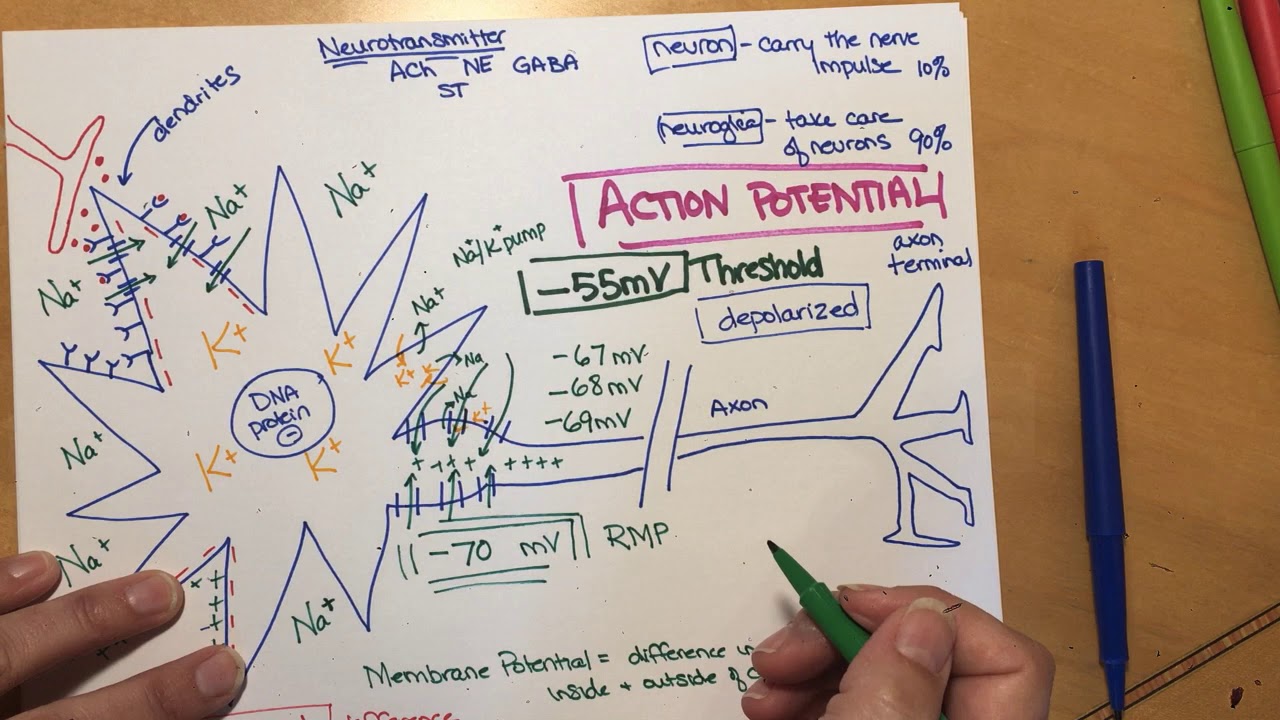 Neurotransmitter
ACh NE GABA
ST
neuron - carry the nerve
impulse 10%
neuroglia - take care
of neurons 90%
dendrites
ACTION POTENTIAL
-55mV Threshold
depolarized
axon
terminal
Na+/K+ pump
Na+
Na+
Na+
Na+
Na+
Na
Na
K+
K+
K+
K+
K+
K
K+
DNA
protein
-
-67mV
-68mV
-69mV
Axon
+ +++ ++++
-70 mV RMP
Na+
Na+
+
+
+
+
Membrane Potential = difference
inside + outside of
difference